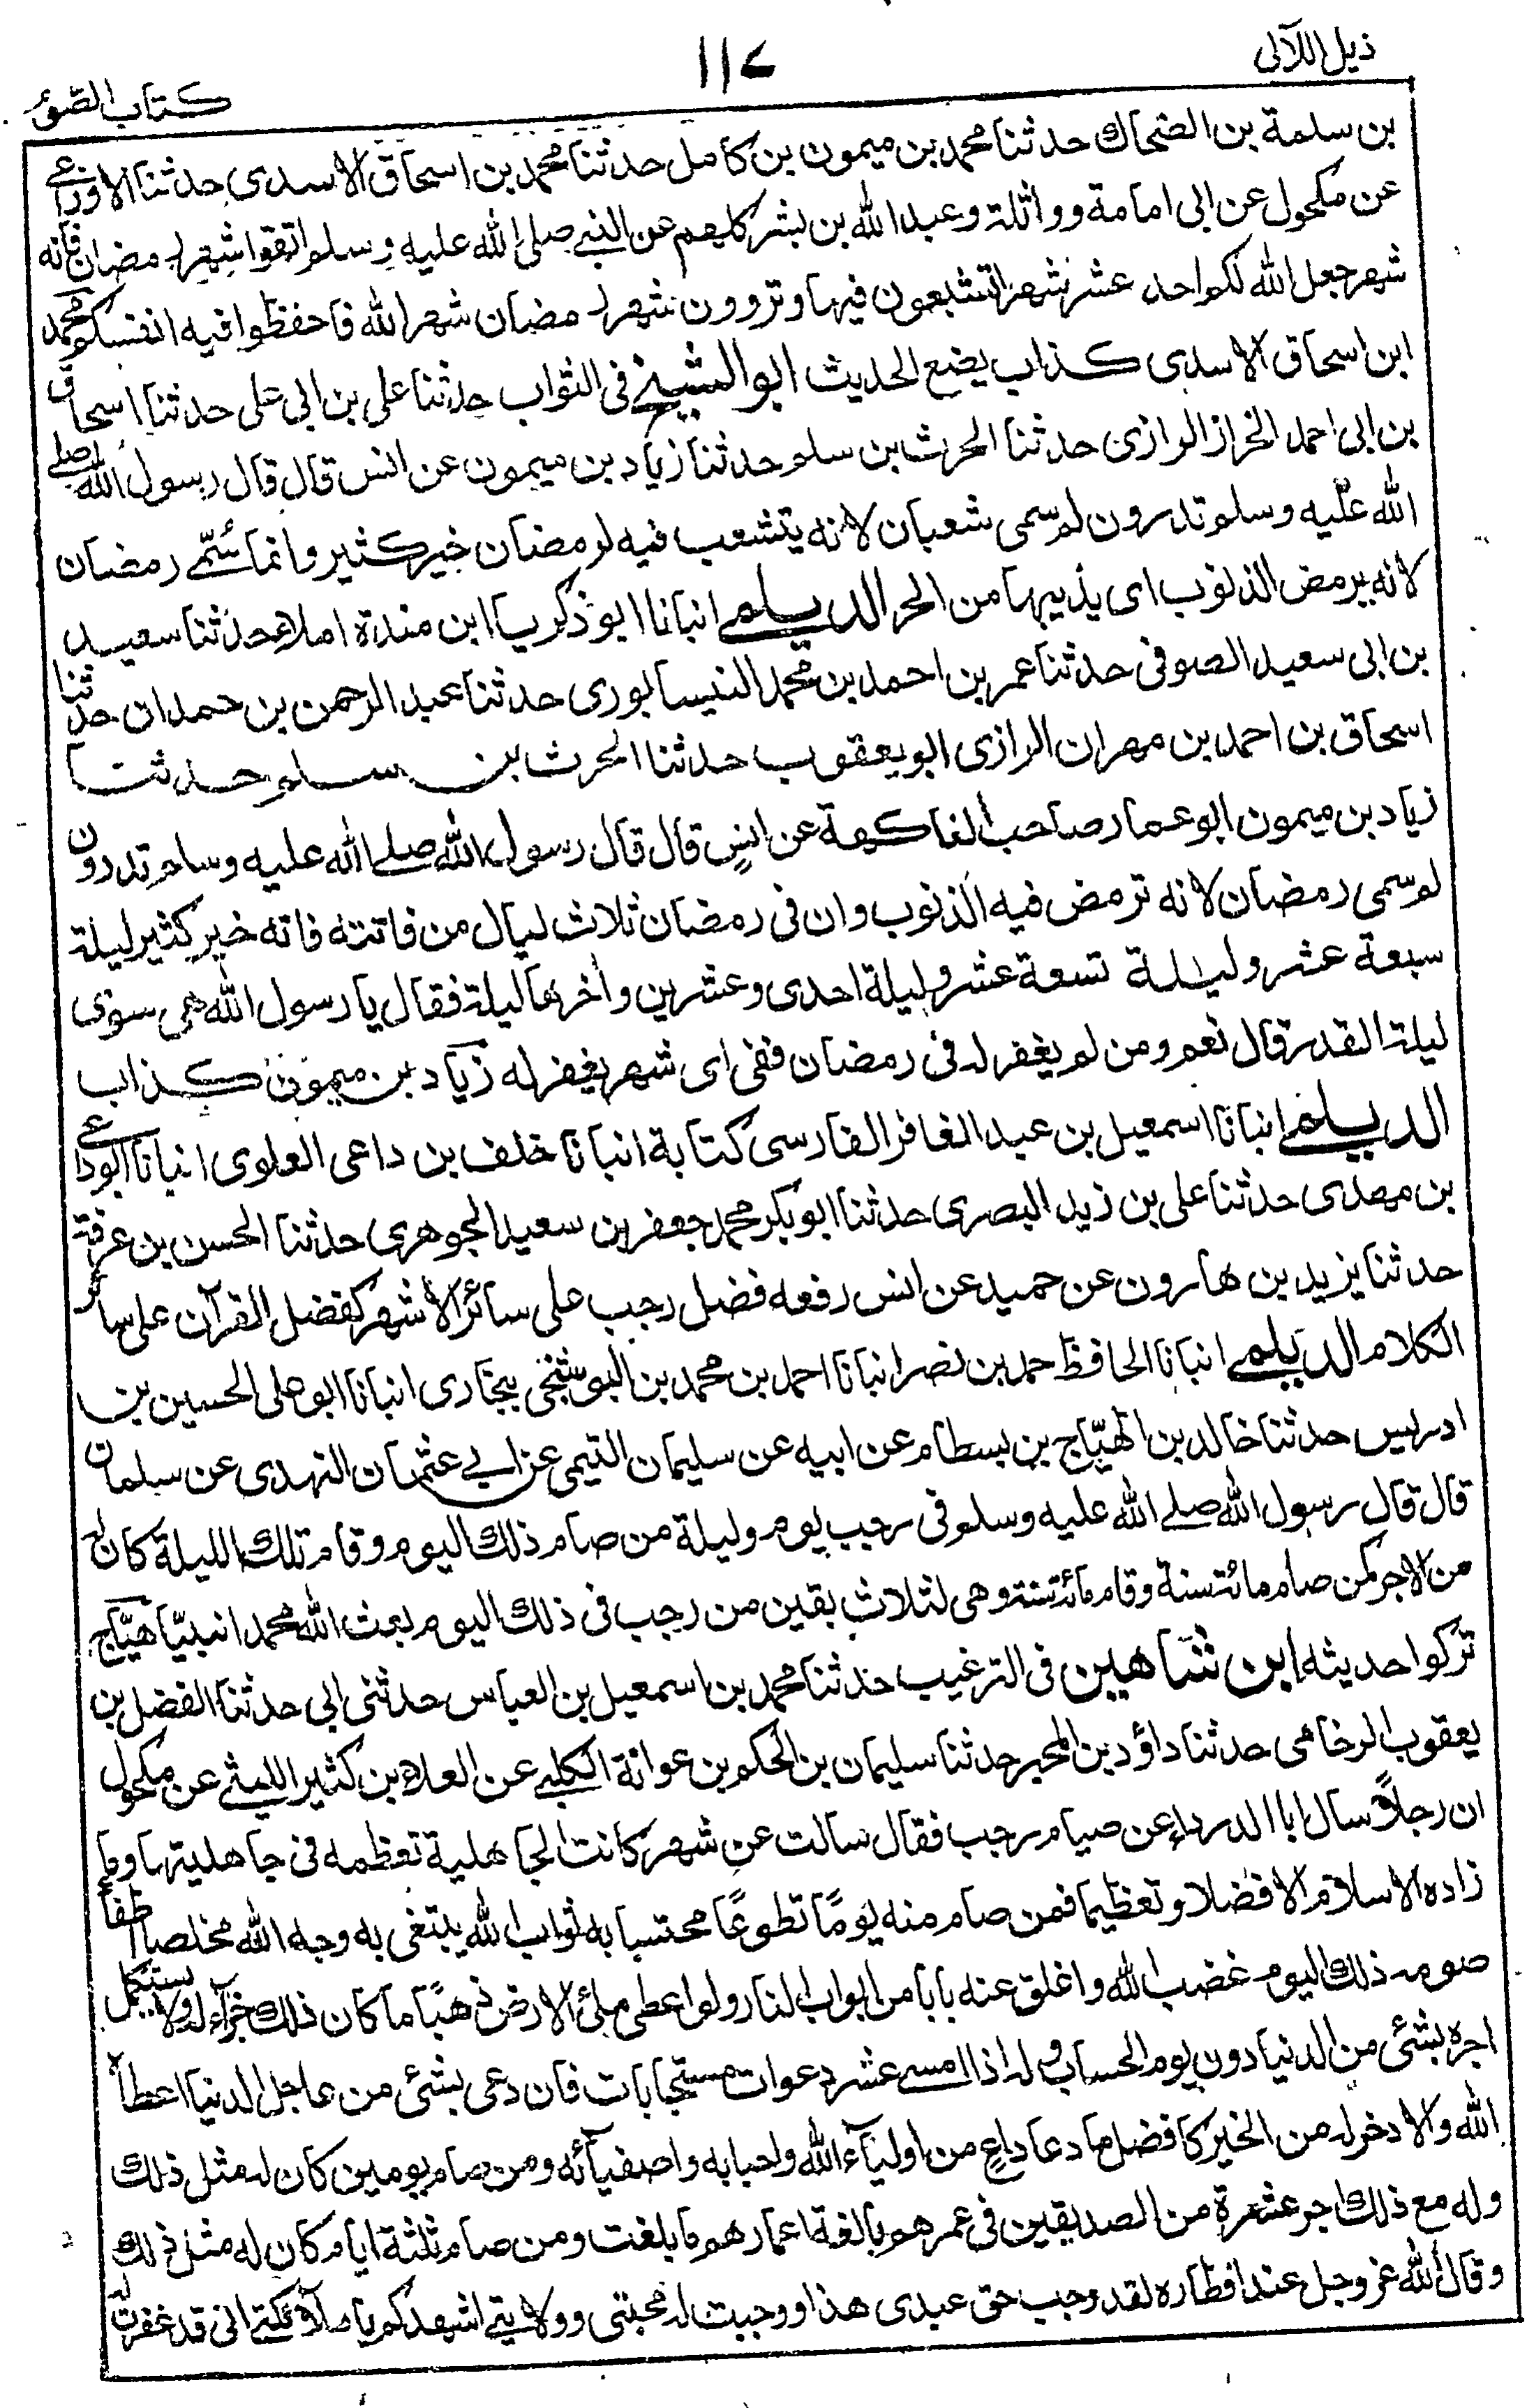 ذيل اللآلى
١١٧
كتاب الصوم
بن سلمة بن الضحاك حدثنا محمد بن ميمون بن كامل حدثنا محمد بن اسحاق الاسدى حدثنا الاوزاعى
عن مكحول عن ابى امامة وواثلة وعبد الله بن بشر كلهم عن النبى صلى الله عليه وسلم اتقوا شهر رمضان فانه
شهر جعل الله لكم احد عشر شهرا تشبعون فيها وتروون شهر رمضان شهر الله فاحفظوا فيه انفسكم محمد
ابن اسحاق الاسدى كذاب يضع الحديث ابو الشيخ فى الثواب حدثنا على بن ابى على حدثنا اسحاق
بن ابى احمد الخراز الرازى حدثنا الحرث بن سلم حدثنا زياد بن ميمون عن انس قال قال رسول الله صلى
الله عليه وسلم تدرون لم سمى شعبان لانه يتشعب فيه لرمضان خير كثير وانما سُمّى رمضان
لانه يرمض الذنوب اى يذيبها من الحر الديلمى انبانا ابو زكريا ابن مندة املاء حدثنا سعيد
بن ابى سعيد الصوفى حدثنا عمر بن احمد بن محمد النيسابورى حدثنا عبد الرحمن بن حمدان حدثنا
اسحاق بن احمد بن مهران الرازى ابو يعقوب حدثنا الحرث بن سلم حدثنا
زياد بن ميمون ابو عمار صاحب الفاكهة عن انس قال قال رسول الله صلى الله عليه وسلم تدرون
لم سمى رمضان لانه ترمض فيه الذنوب وان فى رمضان ثلاث ليال من فاتته فاته خير كثير ليلة
سبعة عشر وليلة تسعة عشر وليلة احدى وعشرين وأخرها ليلة فقال يا رسول الله هى سوى
ليلة القدر قال نعم ومن لم يغفر له فى رمضان ففى اى شهر يغفر له زياد بن ميمون كذاب
الديلمى انبانا اسمعيل بن عبد الغافر الفارسى كتابة انبانا خلف بن داعى العلوى انبانا ابو داعى
بن مهدى حدثنا على بن زيد البصرى حدثنا ابو بكر محمد جعفر بن سعيد الجوهرى حدثنا الحسن بن عرفة
حدثنا يزيد بن هارون عن حميد عن انس رفعه فضل رجب على سائر الاشهر كفضل القرآن على سائر
الكلام الديلمى انبانا الحافظ حمد بن نصر انبانا احمد بن محمد بن البوشنجى ببخارى انبانا ابو على الحسين بن
ادريس حدثنا خالد بن الهيّاج بن بسطام عن ابيه عن سليمان التيمى عن ابى عثمان النهدى عن سلمان
قال قال رسول الله صلى الله عليه وسلم فى رجب يوم وليلة من صام ذلك اليوم وقام تلك الليلة كان له
من الاجر كمن صام مائة سنة وقام مائة سنة وهى لثلاث بقين من رجب فى ذلك اليوم بعث الله محمدا نبيّا هيّاج
تركوا حديثه ابن شاهين فى الترغيب حدثنا محمد بن اسمعيل بن العباس حدثنى ابى حدثنا الفضل بن
يعقوب الرخامى حدثنا داؤد بن المحبر حدثنا سليمان بن الحكم بن عوانة الكلبى عن العلاء بن كثير الليثى عن مكحول
ان رجلاً سال ابا الدرداء عن صيام رجب فقال سالت عن شهر كانت الجاهلية تعظمه فى جاهليتها وما
زاده الاسلام الا فضلا وتعظيما فمن صام منه يومًا تطوعًا محتسبا به ثواب الله يبتغى به وجه الله مخلصا اطفأ
صومه ذلك اليوم غضب الله واغلق عنه بابا من ابواب النار ولو اعطى ملئ الارض ذهبًا ما كان ذلك جزاء له ولا يستكمل
اجره بشئ من الدنيا دون يوم الحساب وله اذا امسى عشر دعوات مستجابات فان دعى بشئ من عاجل الدنيا اعطاه
الله والا دخر له من الخير كافضل ما دعا داعٍ من اولياء الله واحبابه واصفيائه ومن صام يومين كان له مثل ذلك
وله مع ذلك اجر عشرة من الصديقين فى عمرهم بالغة اعمارهم ما بلغت ومن صام ثلثة ايام كان له مثل ذلك
وقال الله عز وجل عند افطاره لقد وجب حق عبدى هذا ووجبت له محبتى وولايتى اشهدكم يا ملآئكتى انى قد غفرت له